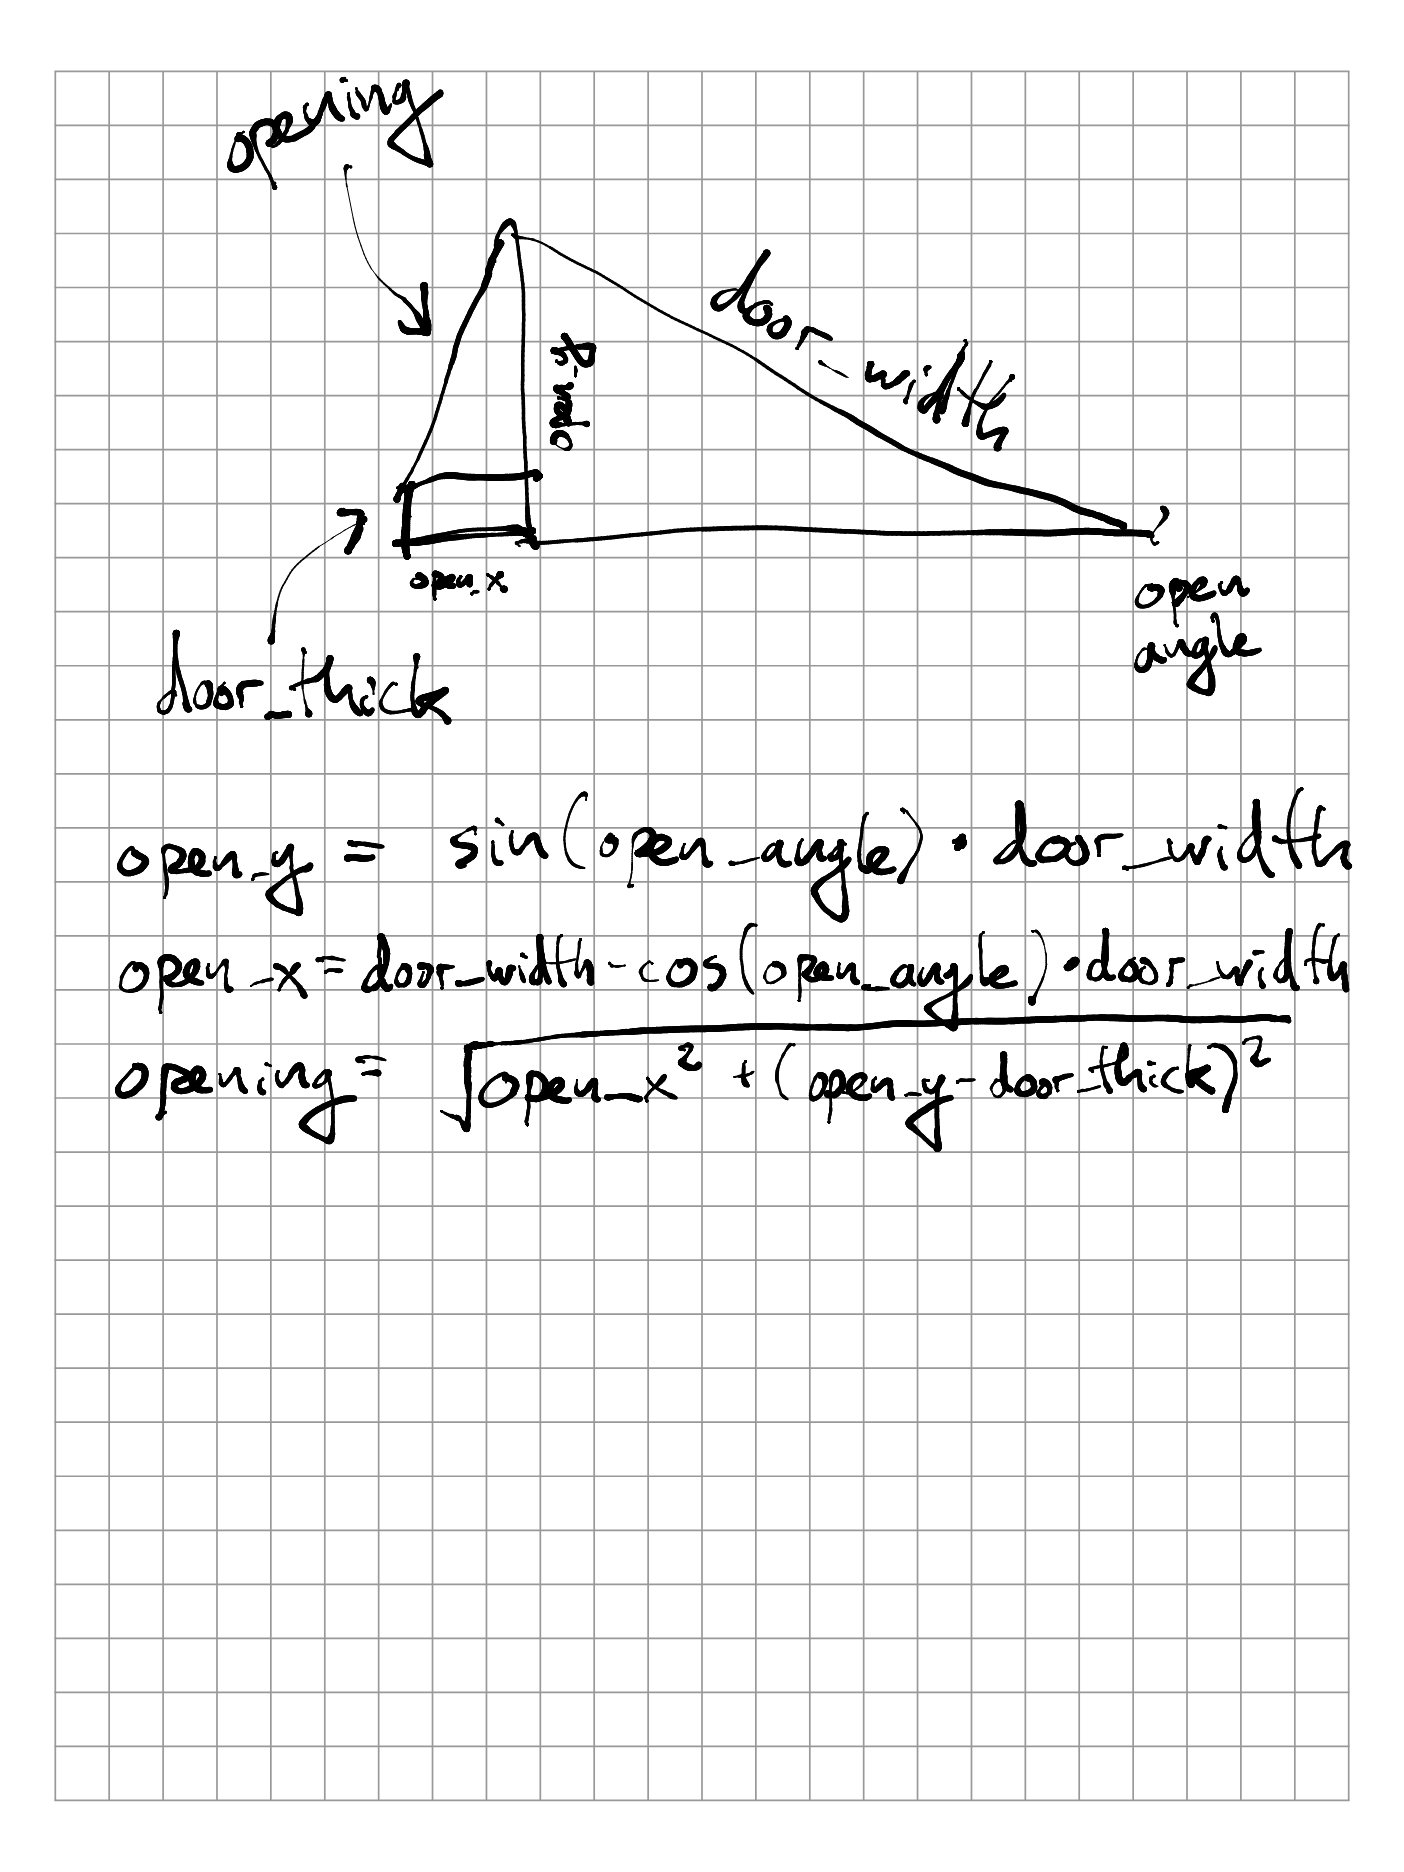 opening
door_width
open_y
open_x
open
angle
door_thick
open_y = sin(open_angle) · door_width
open_x = door_width - cos(open_angle) · door_width
opening = √open_x² + (open_y - door_thick)²